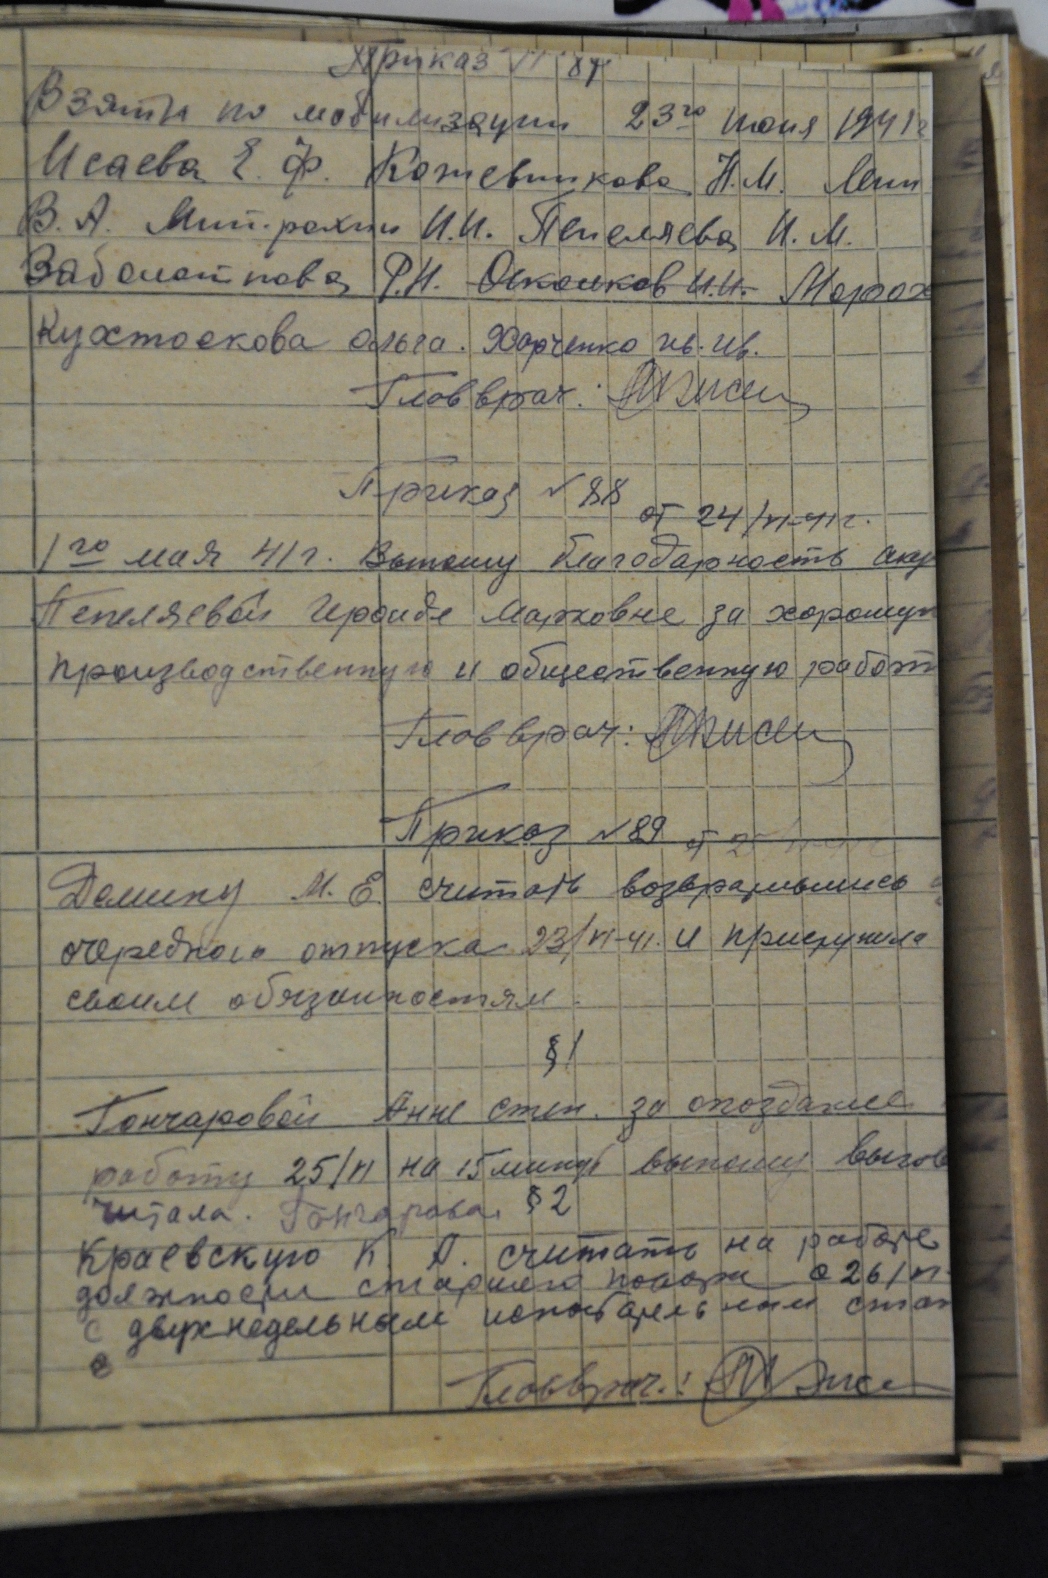 Приказ № 87
Взяты по мобилизации 23го июня 1941г
Исаева Е. Ф. Кожевникова Н.М.
В. А. Митрохин И.И. Пепеляева И. М.
Заболотнова Р.И. Осколков И.И. Мороз
Кухтоскова Ольга. Харченко Ив. Ив.
Глав врач:
Приказ № 88
от 24/VI-41г.
1го мая 41г. Выношу благодарность аку
Пепеляевой Ироиде Марковне за хорошую
производственную и общественную работ
Глав врач:
Приказ № 89 от 25
Демину М. Е. считать возвратившись
очередного отпуска 23/VI-41. и приступила
своим обязанностям.
§ 1
Гончаровой Анне степ. за опоздание
работу 25/VI на 15 минут выношу выгов
Читала. Гончарова § 2
Краевскую К. А. считать на работе
должности старшего повара с 26/VI-
с двухнедельным испытательным стаж
с
Главврач: